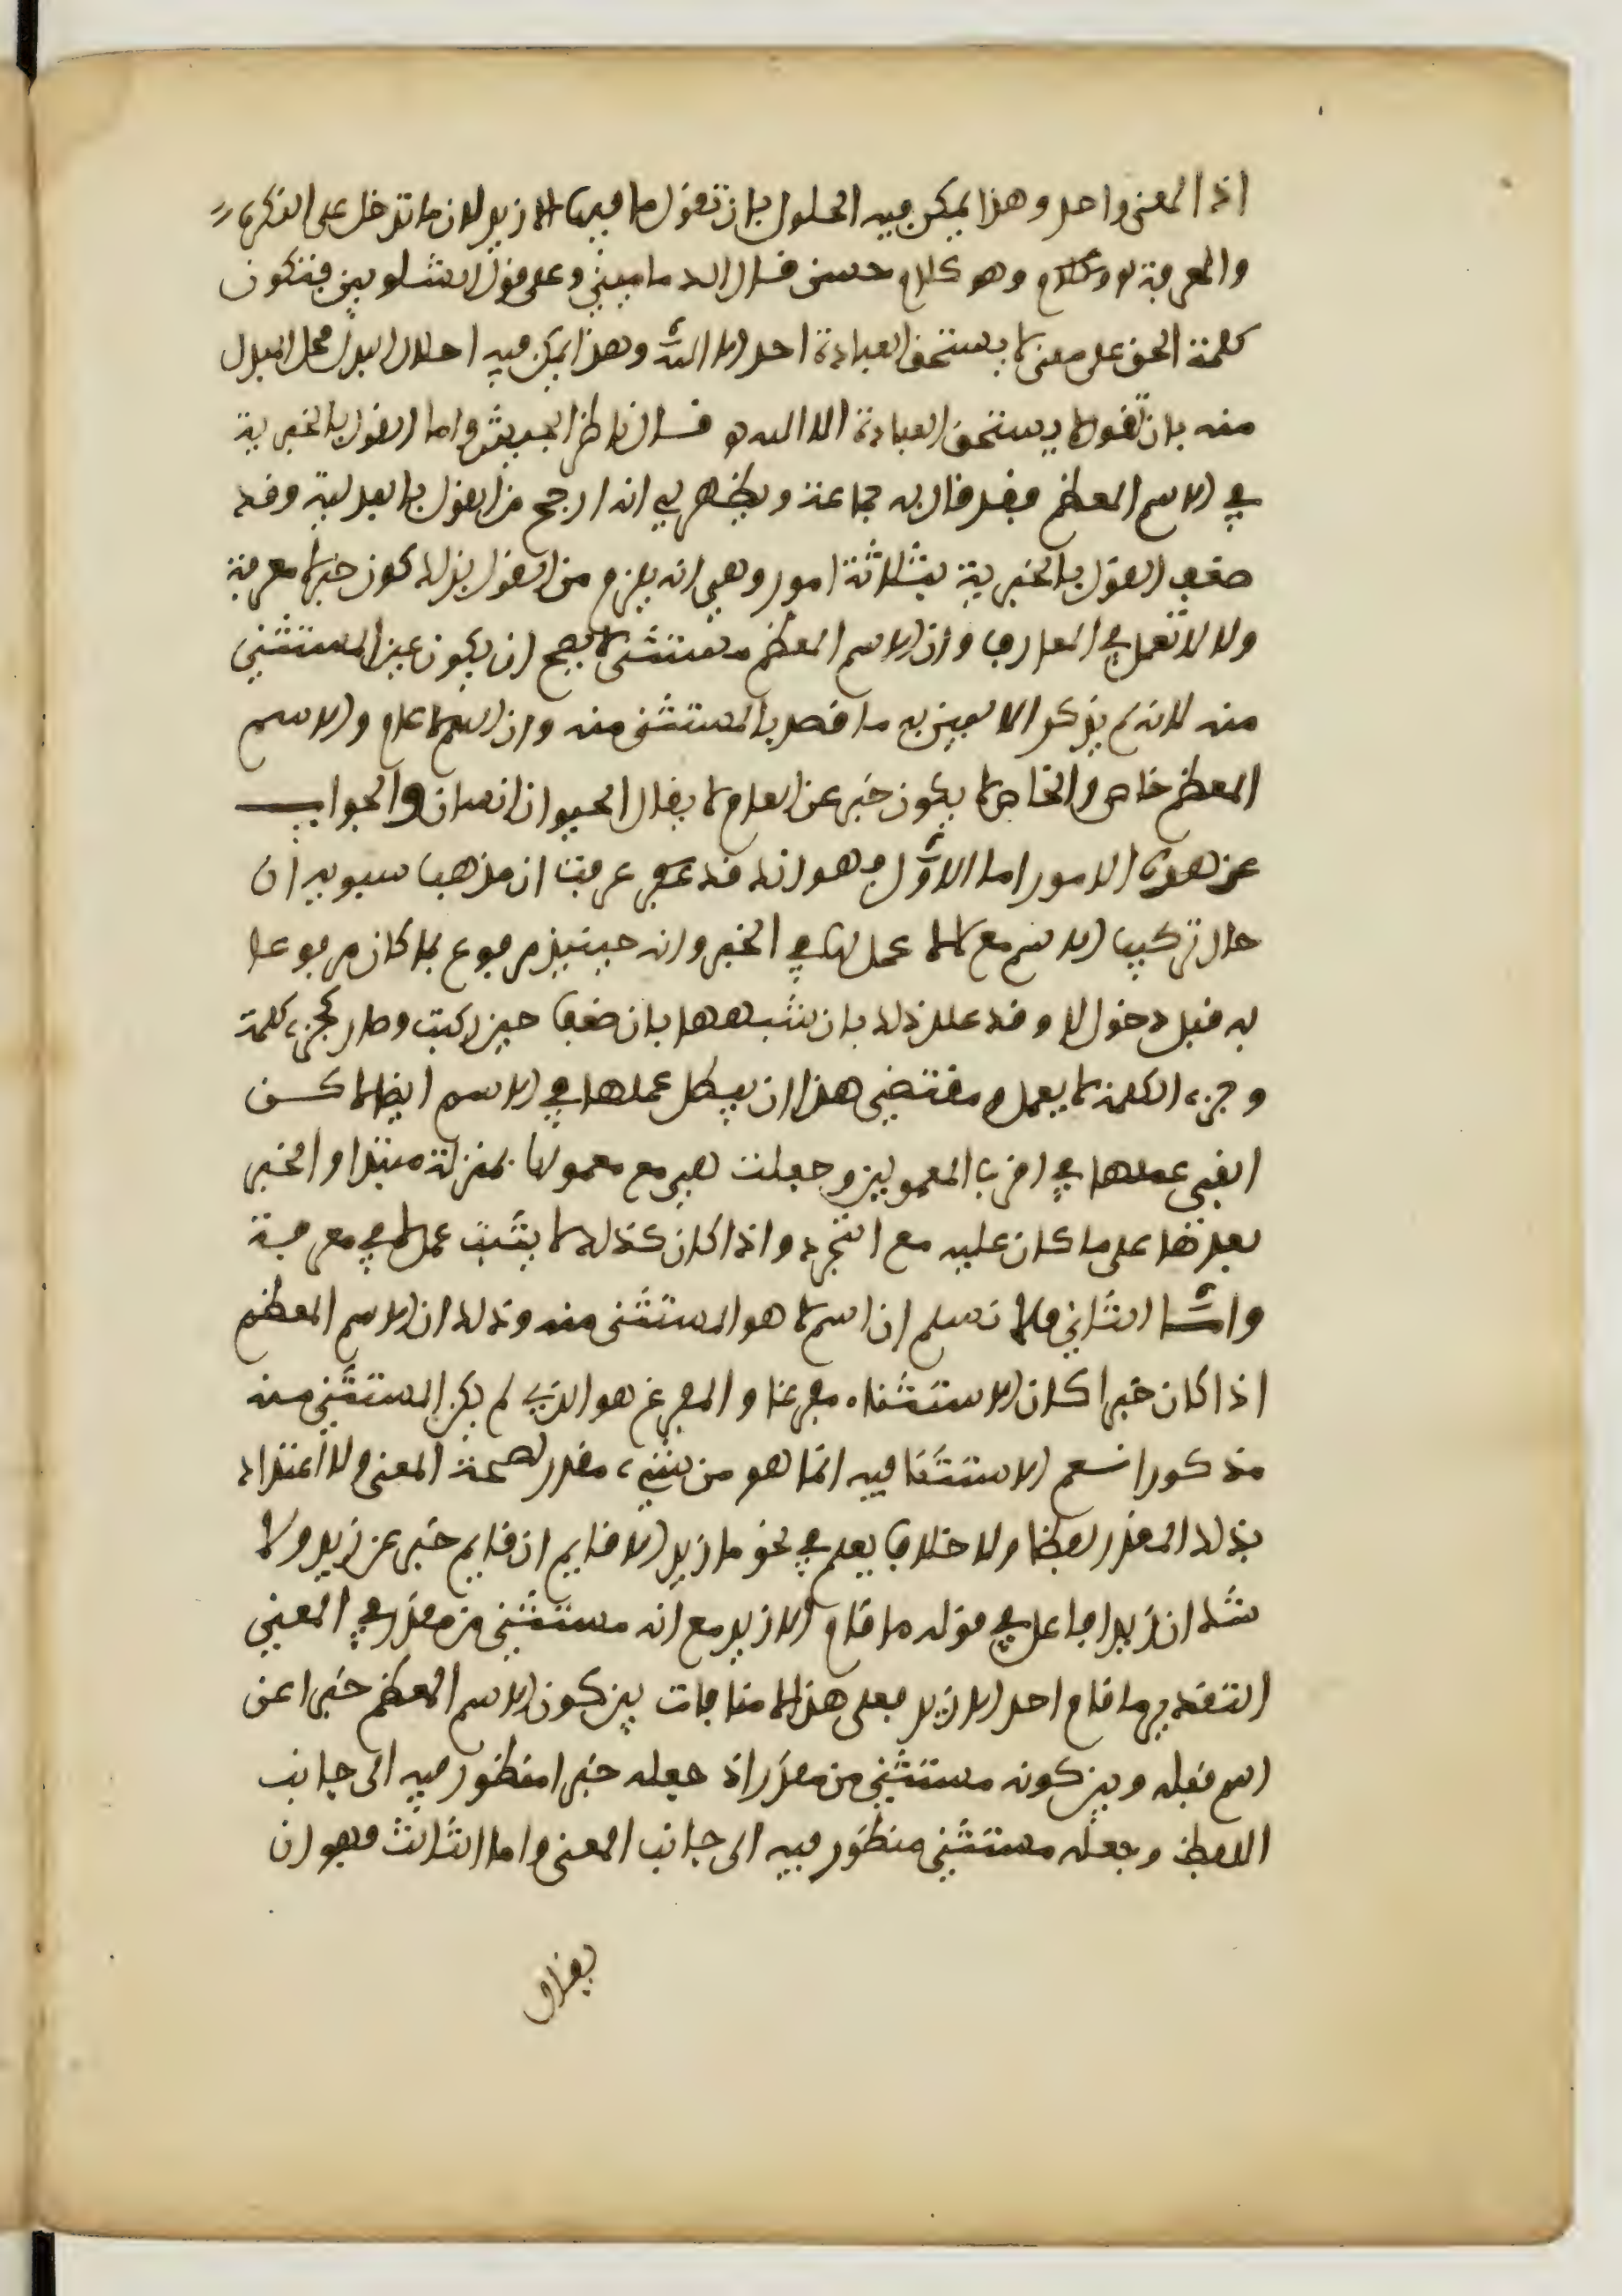 اذ المعنى واحد وهذا يمكن فيه الحلول بان تقول ما فيها الا زيد لان ما تدخل على النكرة
والمعرفة وهو كلام حسن قال الدماميني وعلى قول الشلوبين فتكون
كلمة الحق على معنى لا يستحق العبادة احد الا الله وهذا يمكن فيه احلال البدل محل المبدل
منه بان تقول لا يستحق العبادة الا الله قال ناظر الجيش واما القول بالخبرية
في الاسم المعظم فقد قال به جماعة ويظهر لي انه ارجح من القول بالبدلية وقد
ضعف القول بالخبرية بثلاثة امور وهي انه يلزم من القول بذلك كون خبر لا معرفة
ولا لا تعمل في المعارف وان الاسم المعظم مستثنى لا يصح ان يكون عين المستثنى
منه لانه لم يذكر الا ليبين به ما قصد بالمستثنى منه وان اسم لا عام والاسم
المعظم خاص والخاص لا يكون خبر عن العام لا يقال الحيوان انسان والجواب
عن هذه الامور اما الاول فهو انه قد عرفت ان مذهب سيبويه ان
حال تركيب الاسم مع لا لا عمل لها في الخبر وانه حينيذ مرفوع بما كان مرفوعا
به قبل دخول لا وقد علل ذلك بان شبهها بان ضعف حين ركبت وصار كجزء كلمة
وجزء الكلمة لا يعمل ومقتضى هذا ان يبطل عملها في الاسم ايضا لاكن
ابقى عملها في اقرب المعمولين وجعلت هي مع معمولها بمنزلة مبتدا والخبر
بعدها على ما كان عليه مع التجرد واذا كان كذلك لا يثبت عمل لا في معرفة
واما الثاني فلا نسلم ان اسم لا هو المستثنى منه وذلك ان الاسم المعظم
اذا كان خبرا كان الاستثناء مفرغا والمفرغ هو الذي لم يكن المستثنى منه
مذكورا نعم الاستثنا فيه انما هو من شيء مقدر لصحة المعنى ولا اعتداد
بذلك المقدر لفظا ولا خلاف يعلم في نحو ما زيد الا قايم ان قايم خبر عن زيد ولا
شك ان زيدا فاعل في قوله ما قام الا زيد مع انه مستثنى من مقدر في المعنى
التقدير ما قام احد الا زيد فعلى هذا لا منافات بين كون الاسم المعظم خبرا عن
اسم قبله وبين كونه مستثنى من مقدر اذ جعله خبرا منظور فيه الى جانب
اللفظ وجعله مستثنى منظور فيه الى جانب المعنى واما الثالث فهو ان
يقال